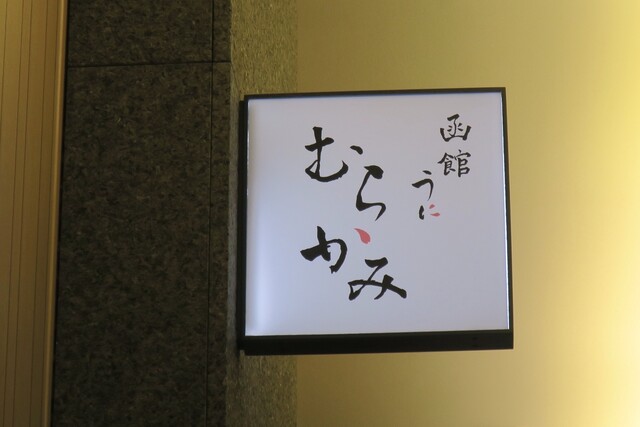 函館
うに
むらかみ